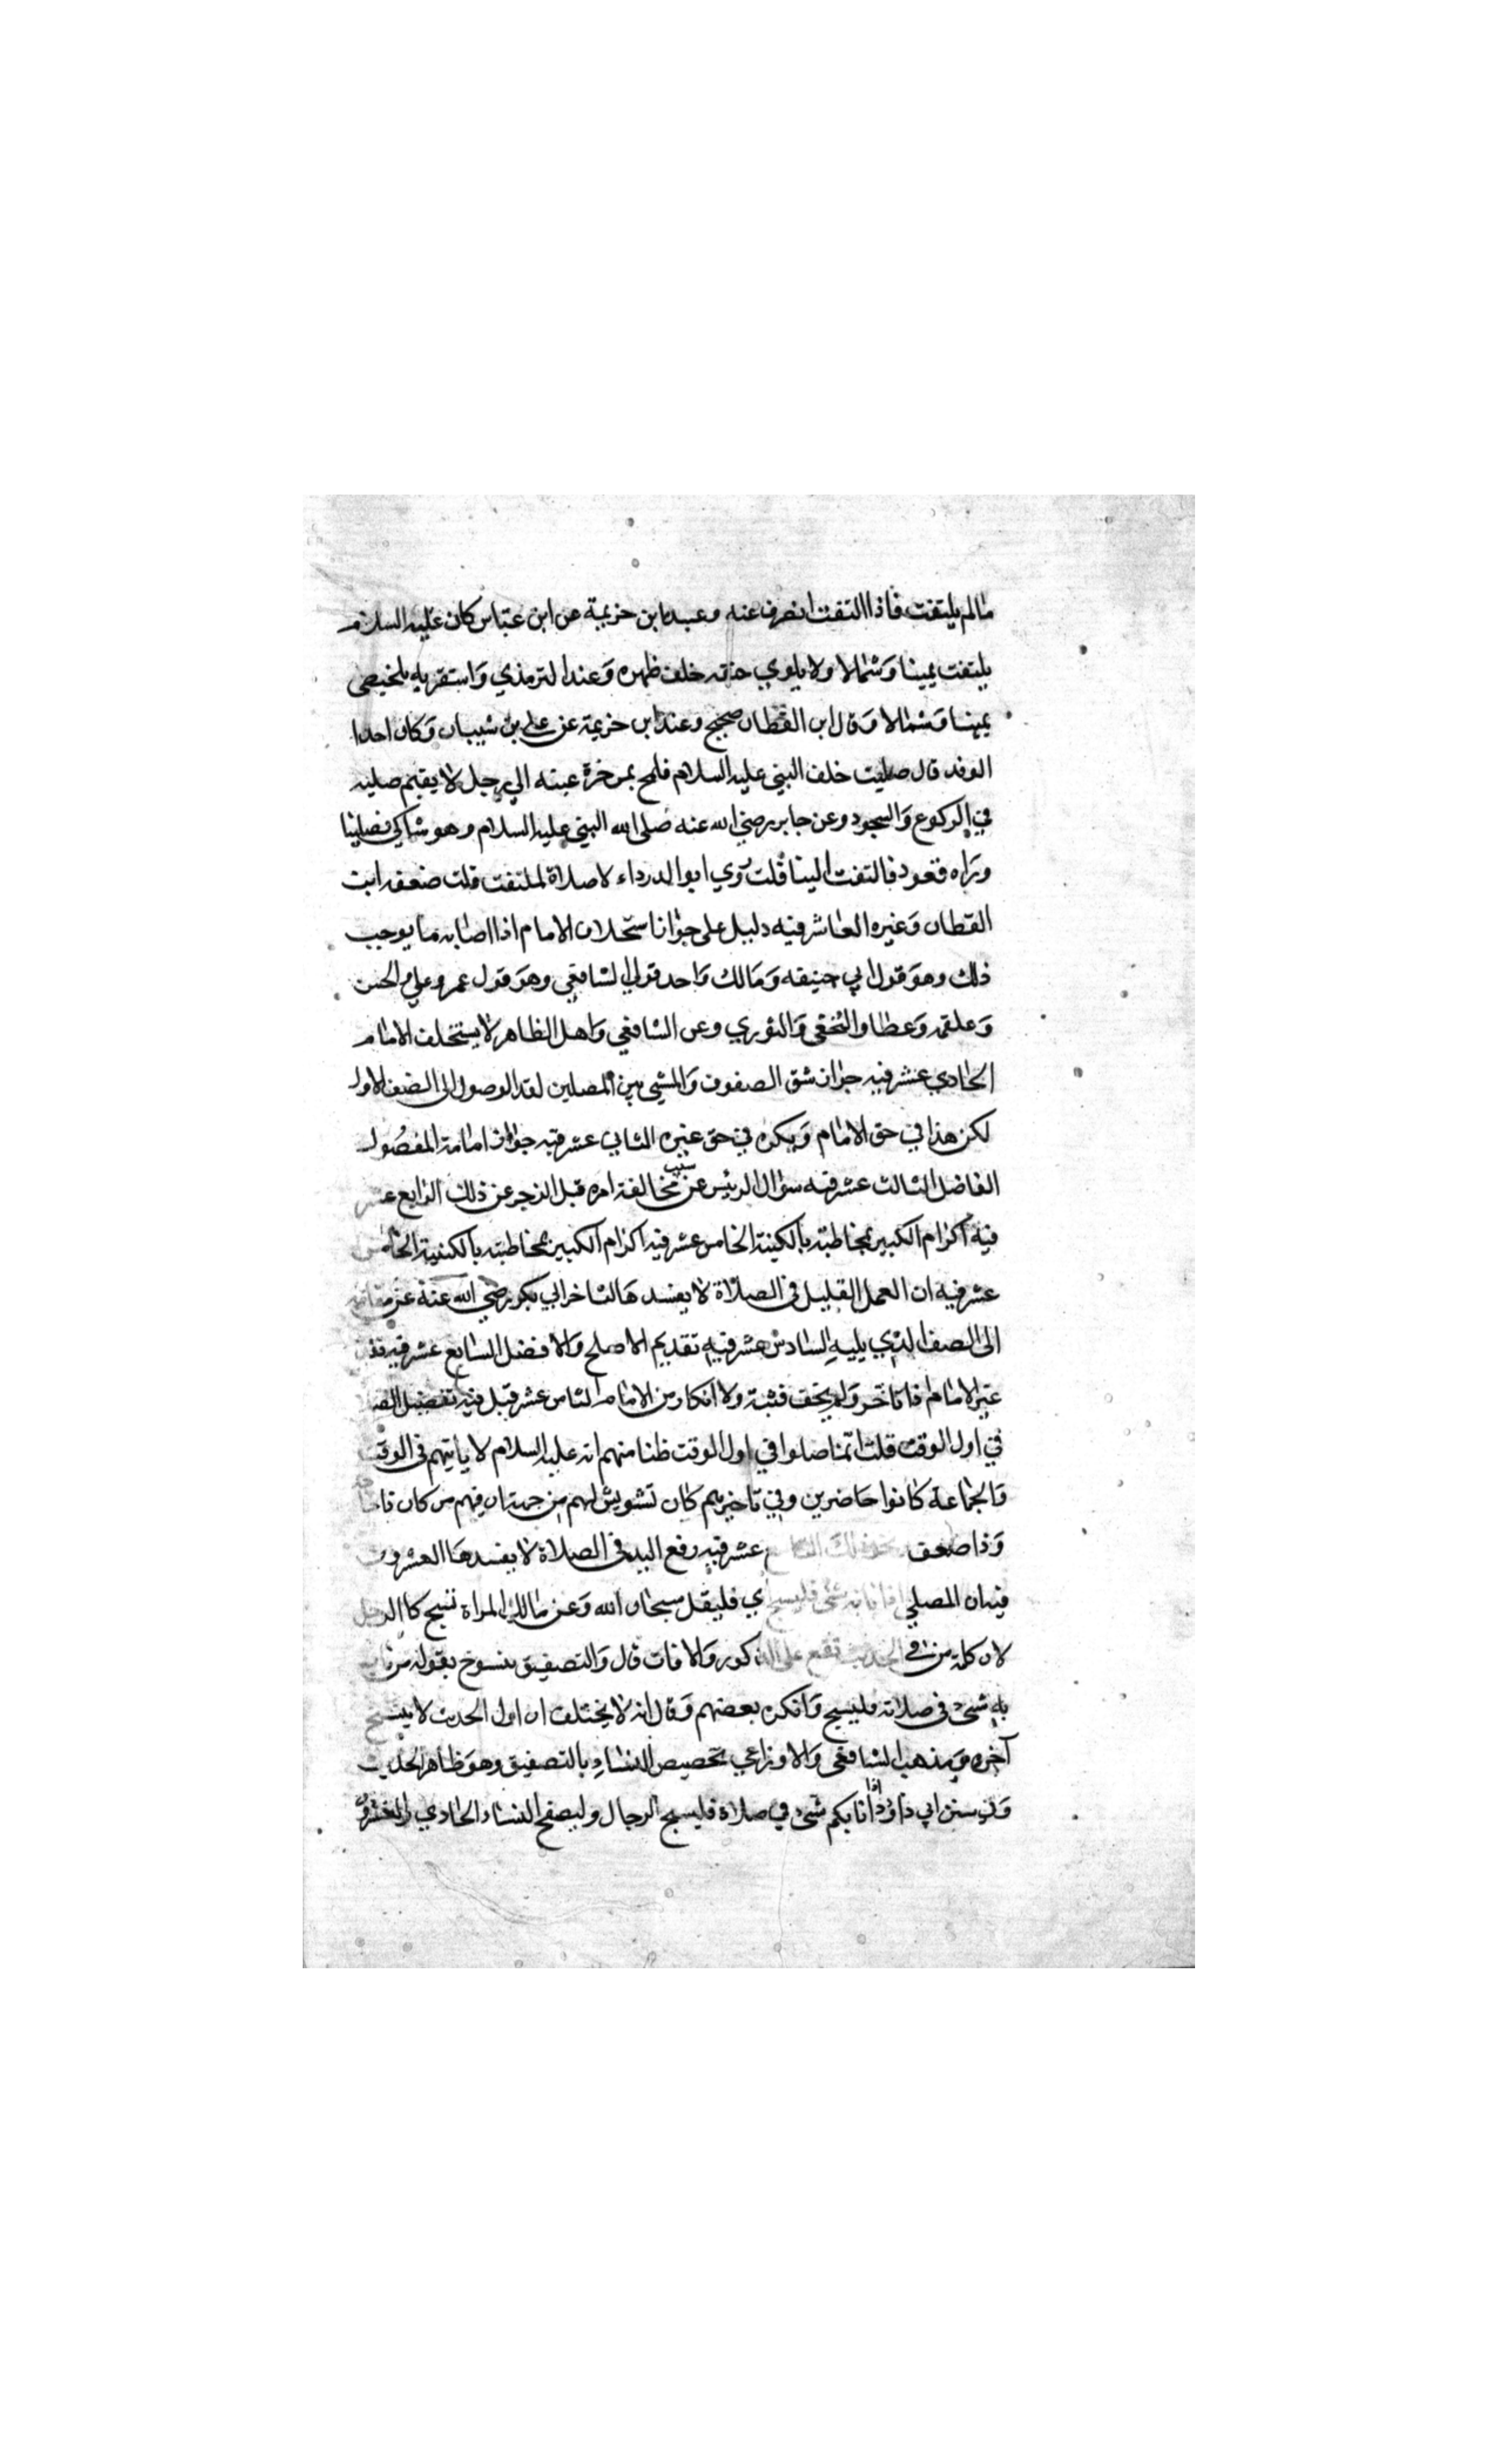 مالم يلتفت فاذا التفت انصرف عنه وعند ابن خزيمة عن ابن عباس كان عليه السلام
يلتفت يمينا وشمالا ولا يلوي عنقه خلف ظهره وعند الترمذي واستقر به يلحظني
يمينا وشمالا وقال ابن القطان صحيح وعند ابن خزيمة عن علي بن شيبان وكان احدا
الوفد قال صليت خلف النبي عليه السلام فلمح بمؤخرة عينه الي رجل لا يقيم صلبه
في الركوع والسجود وعن جابر رضي الله عنه صلى الله النبي عليه السلام وهو شاكي فصلينا
وراه قعود فالتفت الينا قلت روي ابو الدرداء لا صلاة لملتفت قلت ضعفه ابن
القطان وغيره العاشر فيه دليل على جواز استخلاف الامام اذا اصابه ما يوجب
ذلك وهو قول ابي حنيفه ومالك واحد قولي الشافعي وهو قول عمر وعلي والحسن
وعلقمه وعطا والنخعي والثوري وعن الشافعي واهل الظاهر لا يستخلف الامام
الحادي عشر فيه جواز شق الصفوف والمشي بين المصلين لقد الوصول الى الصف الاول
لكن هذا في حق الامام ويكره في حق غيره الثاني عشر فيه جواز امامة المفضول
الفاضل الثالث عشر فيه سؤال الرئيس عن سبب مخالفة امره قبل الزجر عن ذلك الرابع عشر
فيه اكرام الكبير بمخاطبته بالكنية الخامس عشر فيه اكرام الكبير بمخاطبته بالكنية الخامس
عشر فيه ان العمل القليل في الصلاة لا يفسدها لتاخر ابي بكر رضي الله عنه عن مقامه
الى الصف الذي يليه السادس عشر فيه تقديم الاصلح والافضل السابع عشر فيه
غير الامام فاتاخر ولم يخف فتنة ولا انكار من الامام الثامن عشر قيل فيه تفضيل
في اول الوقت قلت انما صلوا في اول الوقت ظنا منهم انه عليه السلام لا ياتيهم في الوقت
والجماعة كانوا حاضرين وفي تاخيرهم كان تشويش لهم من جهة ان فيهم من كان
وذا ضعف ونحو ذلك التاسع عشر فيه رفع اليد في الصلاة لا يفسدها العشرون
فيه ان المصلي اذا نابه شئ فليسبح اي فليقل سبحان الله وعن مالك المراة تسبح كالرجل
لان كلمة من في الحديث تقع على الذكور والاناث قال والتصفيق منسوخ بقوله من نابه
به شئ في صلاته فليسبح وانكره بعضهم وقال انه لا يختلف ان اول الحديث لا ينسخ
آخره ومذهب الشافعي والاوزاعي تخصيص النساء بالتصفيق وهو ظاهر الحديث
وفي سنن ابي داود اذا نابكم شئ في صلاة فليسبح الرجال وليصفح النساء الحادي والعشرون